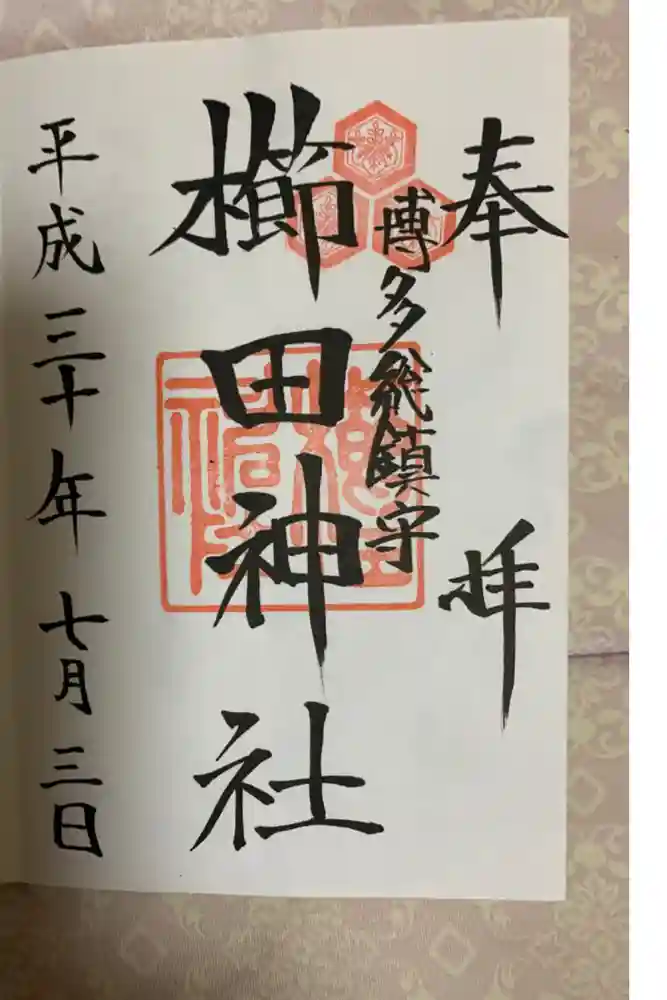 奉拝
博多総鎮守
櫛田神社
平成三十年七月三日